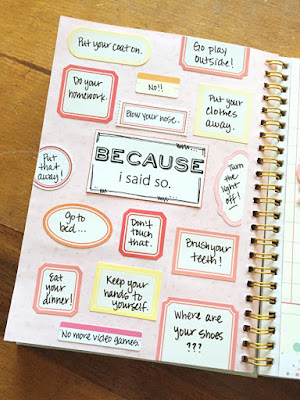 Put your coat on.
Go play
outside!
Do your
homework.
No!!
Put your
clothes
away.
Blow your nose..
BECAUSE
i said so.
Put
that
away!
Turn
the
light
off!
Go to
bed...
Don't
touch
that.
Brush your
teeth!
Eat
your
dinner!
Keep your
hands to
yourself.
Where are
your shoes
???
No more video games.